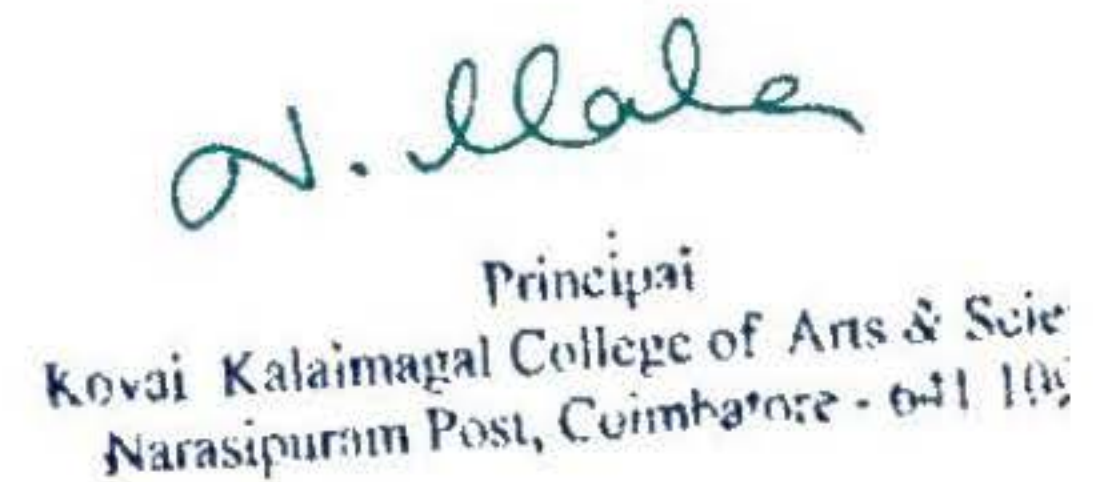 N. Mala
Principal
Kovai Kalaimagal College of Arts & Scie
Narasipuram Post, Coimbatore - 641 10